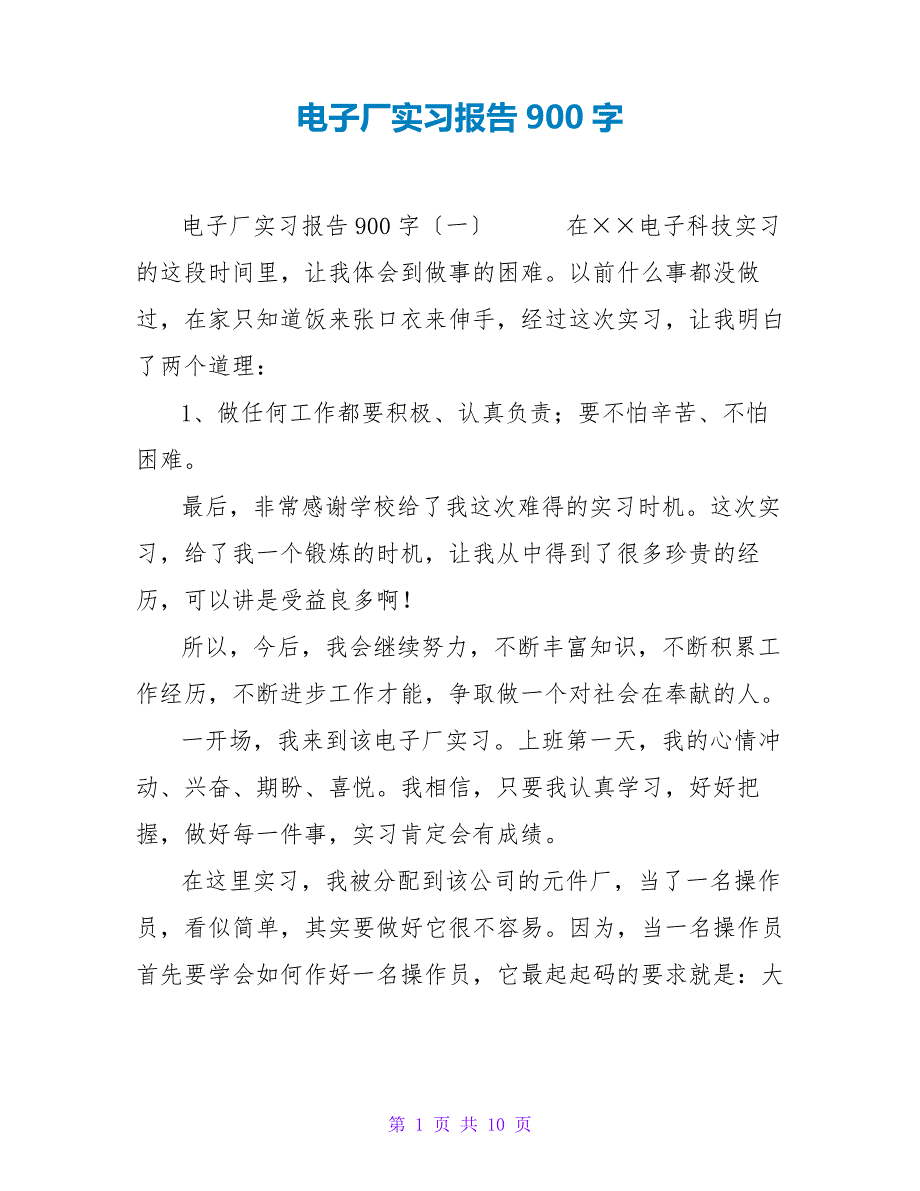 电子厂实习报告900字
电子厂实习报告900字〔一〕 在××电子科技实习
的这段时间里，让我体会到做事的困难。以前什么事都没做
过，在家只知道饭来张口衣来伸手，经过这次实习，让我明白
了两个道理：
1、做任何工作都要积极、认真负责；要不怕辛苦、不怕
困难。
最后，非常感谢学校给了我这次难得的实习时机。这次实
习，给了我一个锻炼的时机，让我从中得到了很多珍贵的经
历，可以讲是受益良多啊！
所以，今后，我会继续努力，不断丰富知识，不断积累工
作经历，不断进步工作才能，争取做一个对社会在奉献的人。
一开场，我来到该电子厂实习。上班第一天，我的心情冲
动、兴奋、期盼、喜悦。我相信，只要我认真学习，好好把
握，做好每一件事，实习肯定会有成绩。
在这里实习，我被分配到该公司的元件厂，当了一名操作
员，看似简单，其实要做好它很不容易。因为，当一名操作员
首先要学会如何作好一名操作员，它最起起码的要求就是：大
第 1 页 共 10 页